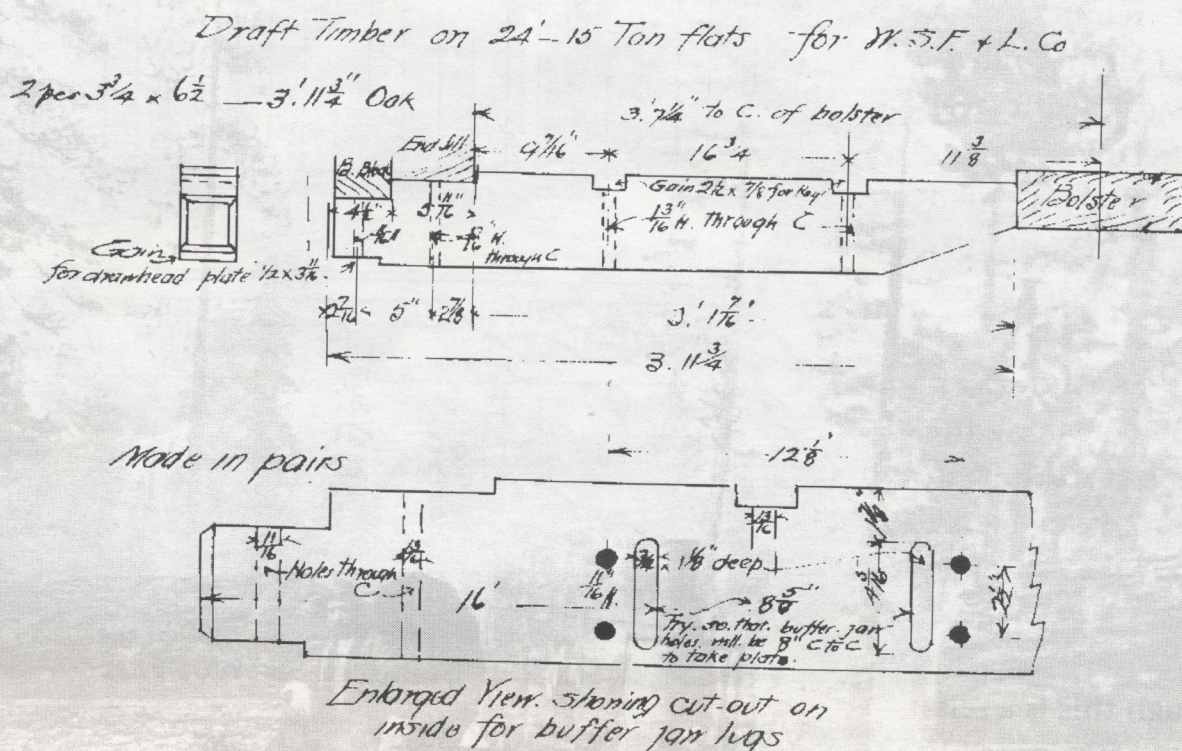 Draft Timber on 24'-15 Ton flats for W.S.F. & L. Co
2 per 3 3/4 x 6 1/2 — 3'.11 3/4" Oak
3.'7 1/4" to C. of bolster
End Sill
9 7/16"
16 3/4
11 3/8
B. Block
Gain 2 1/2 x 7/8 for Key
Bolster
4 1/2"
5 11/16"
13/16" H. through C
H.
through C
Gain
for drawhead plate 1/2 x 3 11/16
2 7/16
5"
2 7/8
3.' 1 7/16"
3. 11 3/4
12 1/8"
Made in pairs
11/16
Holes through
C
13/16
16"
11/16" H.
3/4 x 1 1/8" deep
13/16
8 5/8"
4 3/16
2 1/2"
Try so that buffer jaw
holes will be 8" C to C
to take plate.
Enlarged View. showing cut-out on
inside for buffer jaw lugs